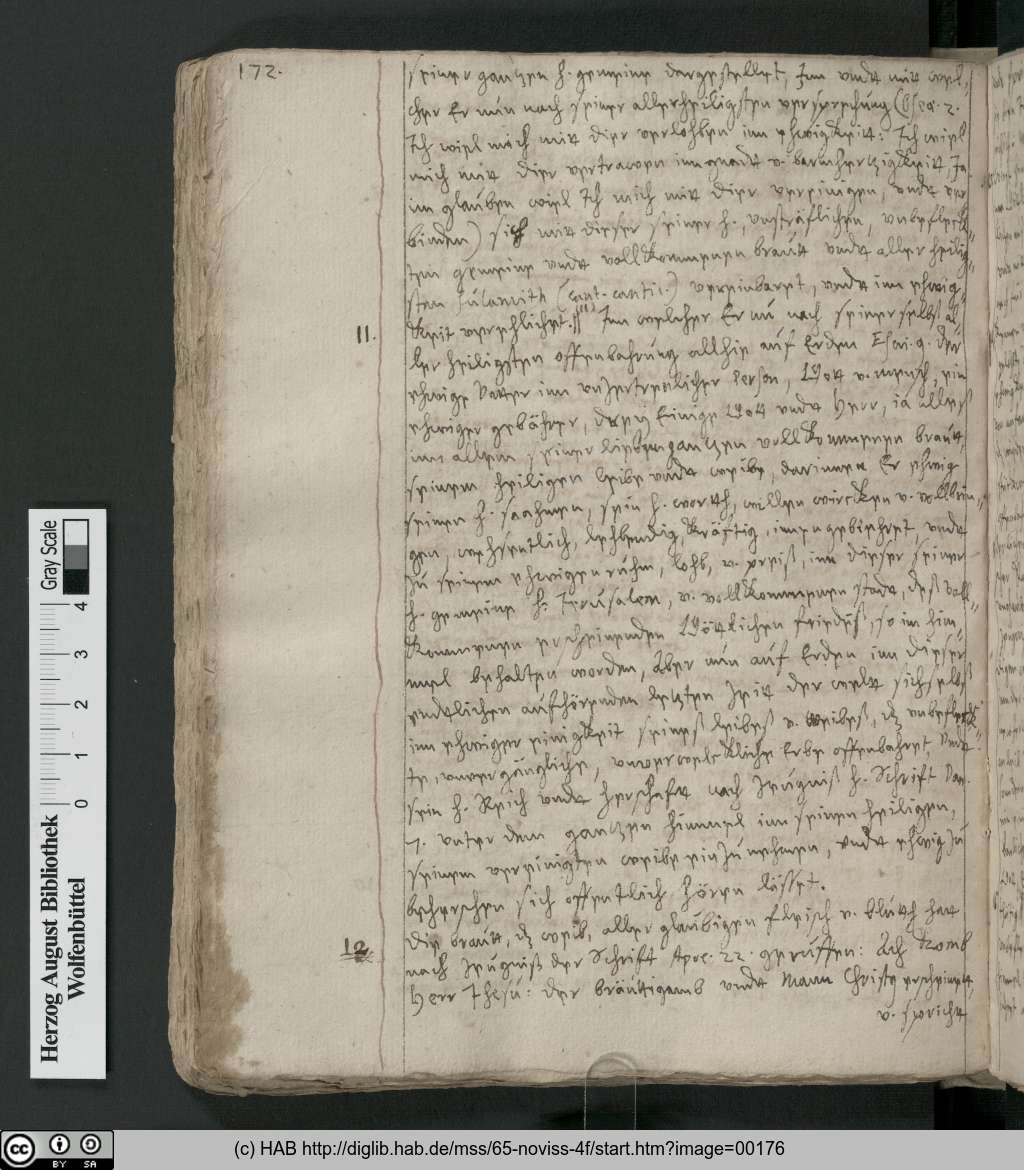 172.
seiner gantzen h. gemeine dargestellet, Inn undt mit wel-
cher Er nun nach seiner allerheiligsten versprechung (Osea. 2.
Ich will mich mit dier verlohben inn ehwigkeit: Ich will
mich mit dier vertrawen inn gnadt v. barmhertzigkeit, Ja
im glauben will Ich mich mit dier vereinigen, undt ver
binden) sich mit dieser seiner h., unsträflichen, unbefleck-
ten gemeine undt vollkommenen braut undt aller heilig-
sten Sulamith (cant. cantic.) vereinbaret, undt inn ehwig-
11. keit verehlichet. Inn welcher Er nu nach seiner selbst al-
ler heiligsten offenbahrung allhie auf Erden Esai. 9. der
ehwige Vatter inn unzertrenlicher Person, Gott v. mensch, ein
ehwiger gebährer, drey Einige Gott undt Herr, ia alles
inn allem seiner liebsten gantzen vollkommenen braut,
seinem heiligen leibe undt weibe, darinnen Er ehwig
seinen h. saahmen, sein h. worth, willen wircken v. vollbrin-
gen, wehsentlich, lehbendig, kräftig, eingebiehret, undt
zu seinem ehwigen ruhm, lohb, v. preiß, inn dieser seiner
h. gemeine h. Jerusalem, v. vollkommenen stadt, deß voll-
kommenen erscheinenden Göttlichen friedens, so im him
mel behalten worden, Aber nun auf Erden inn dieser
endtlichen aufhörenden letzten Zeit der welt sichselbst
inn ehwiger einigkeit seines leibes v. weibes, der unbefleck-
te, unvergängliche, unverwelckliche Erbe offenbahret, Undt
sein h. Reich undt herschaft nach Zeugniß h. Schrift Dan.
7. unter dem gantzen himmel inn seinen heiligen,
seinem vereinigten weibe einzunehmen, undt ehwig zu
beherschen sich offentlich hören lässet.
12. Die braut, das weib, aller gläubigen fleisch v. bluth hat
nach Zeugniß der Schrift Apoc. 22. geruffen: Ach komb
Herr Jhesu: der bräutigamb undt Mann Christus erscheinet,
v. spricht
Herzog August Bibliothek
Wolfenbüttel
0 1 2 3 4
Gray Scale
cc BY SA
(c) HAB http://diglib.hab.de/mss/65-noviss-4f/start.htm?image=00176